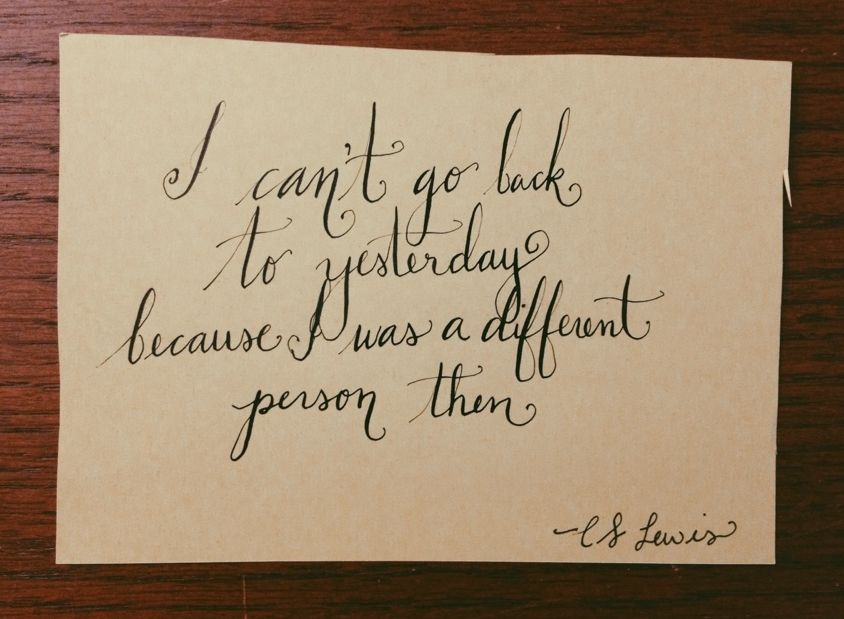 I can't go back
to yesterday
because I was a different
person then
-CS Lewis